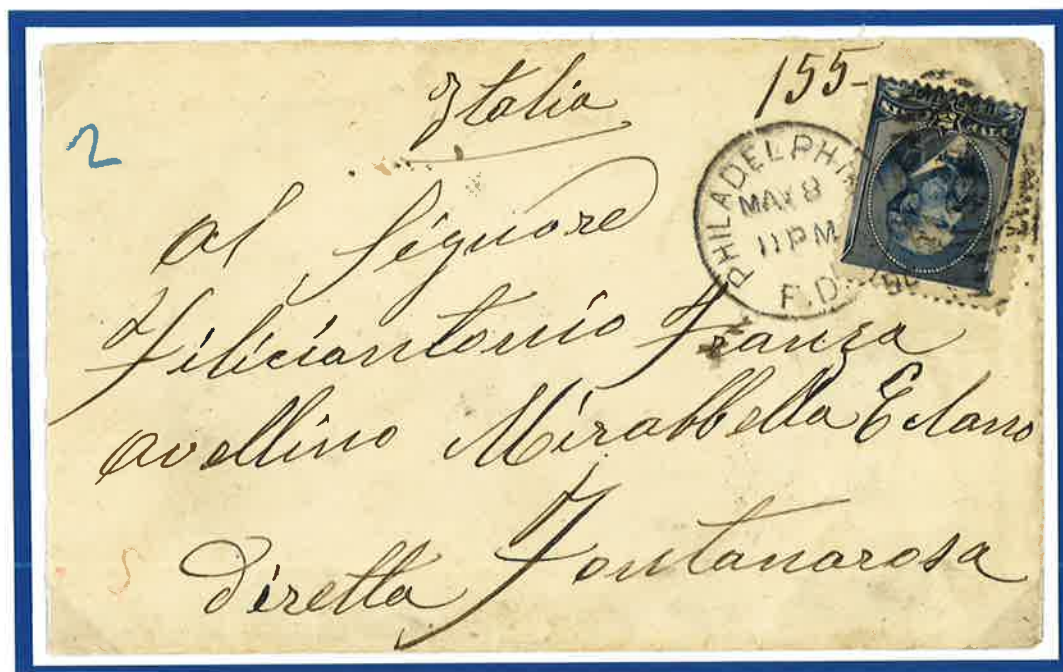 Italia
155-
2
PHILADELPHIA
MAY 8
11 PM
P.D.
al Signore
Filiciantonio Franza
avellino Mirabbella Eclano
diretta Fontanarosa